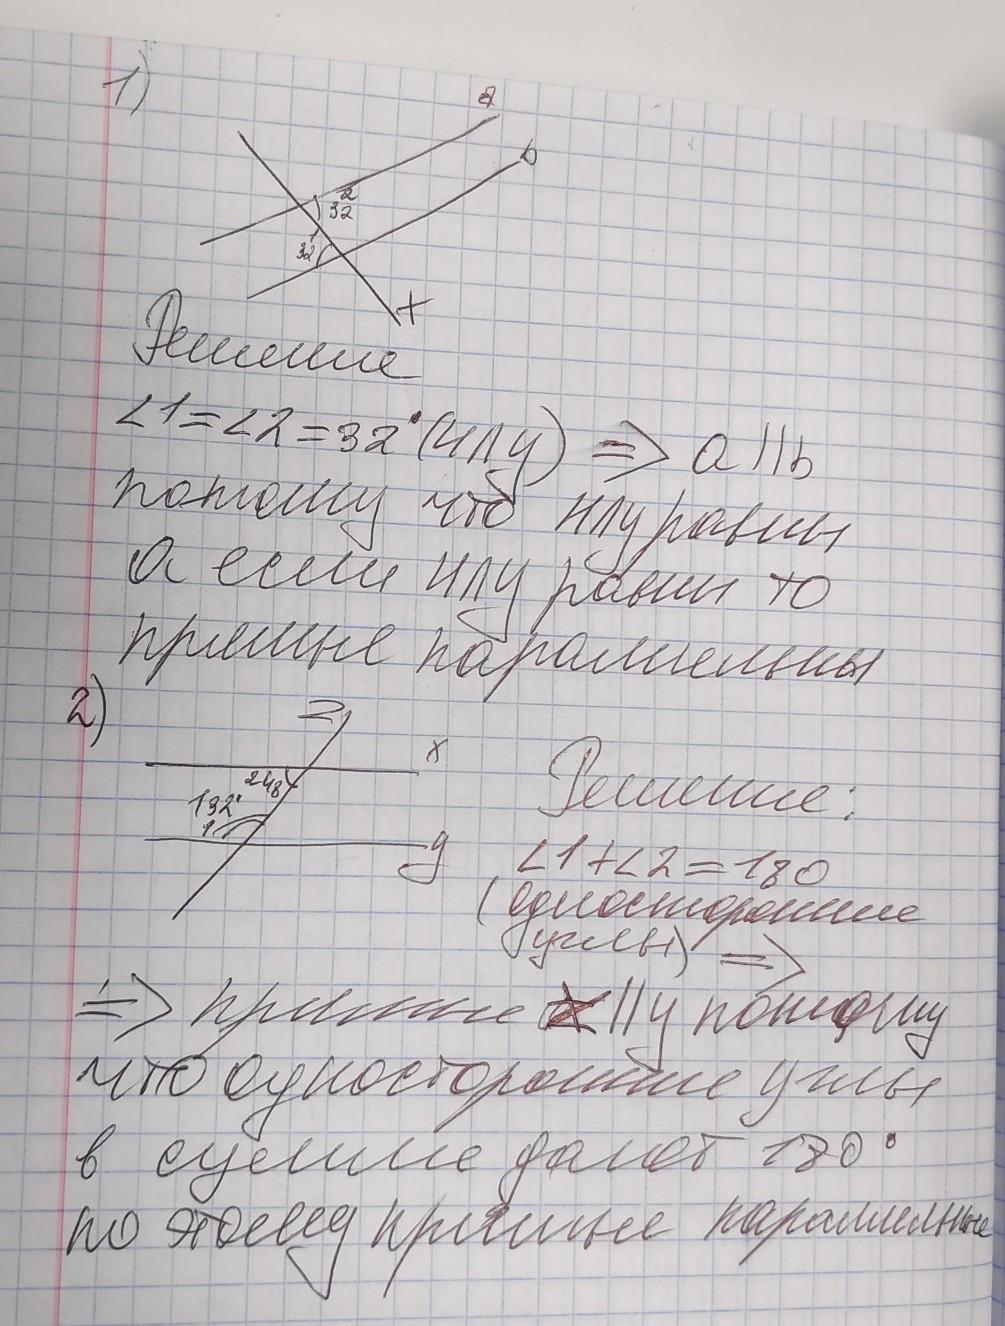 1)
a
b
2
32
1
32
x
Решение
∠1=∠2=32°(НЛУ) => a||b
потому что НЛУ равны
а если НЛУ равны то
прямые параллельны
2)
Z
x
2 48
132°
1
y
Решение:
∠1+∠2=180
(односторонние
углы) =>
=> прямые x||y потому
что односторонние углы
в сумме дают 180°
по этому прямые параллельные